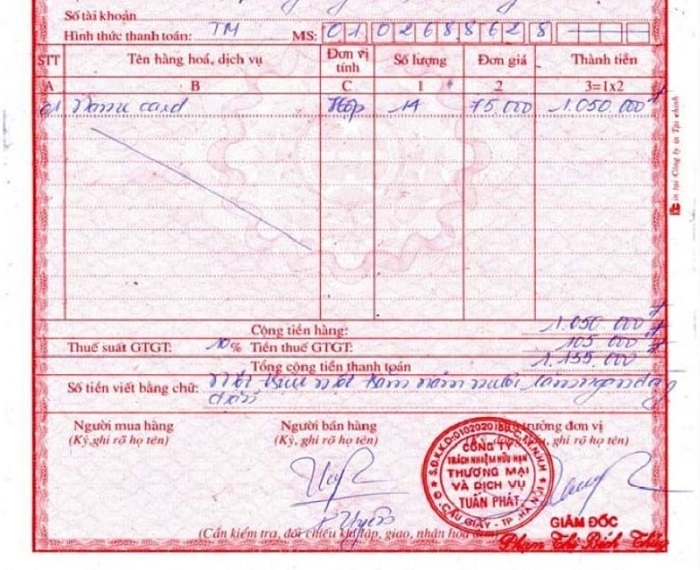 Số tài khoản
Hình thức thanh toán: TM MS: 0102688628
STT Tên hàng hoá, dịch vụ Đơn vị tính Số lượng Đơn giá Thành tiền
A B C 1 2 3=1x2
01 Name card Hộp 14 75.000 1.050.000
Cộng tiền hàng: 1.050.000
Thuế suất GTGT: 10% Tiền thuế GTGT: 105.000
Tổng cộng tiền thanh toán 1.155.000
Số tiền viết bằng chữ: Một triệu một trăm năm mươi lăm ngàn đồng
chẵn
Người mua hàng Người bán hàng trưởng đơn vị
(Ký, ghi rõ họ tên) (Ký, ghi rõ họ tên) họ tên)
CÔNG TY
TRÁCH NHIỆM HỮU HẠN
THƯƠNG MẠI
VÀ DỊCH VỤ
TUẤN PHÁT
CẦU GIẤY - TP HÀ NỘI
GIÁM ĐỐC
Phạm Thị Bích Thủy
(Cần kiểm tra, đối chiếu khi lập, giao, nhận hoá đơn)
in tại Công ty in Tài chính